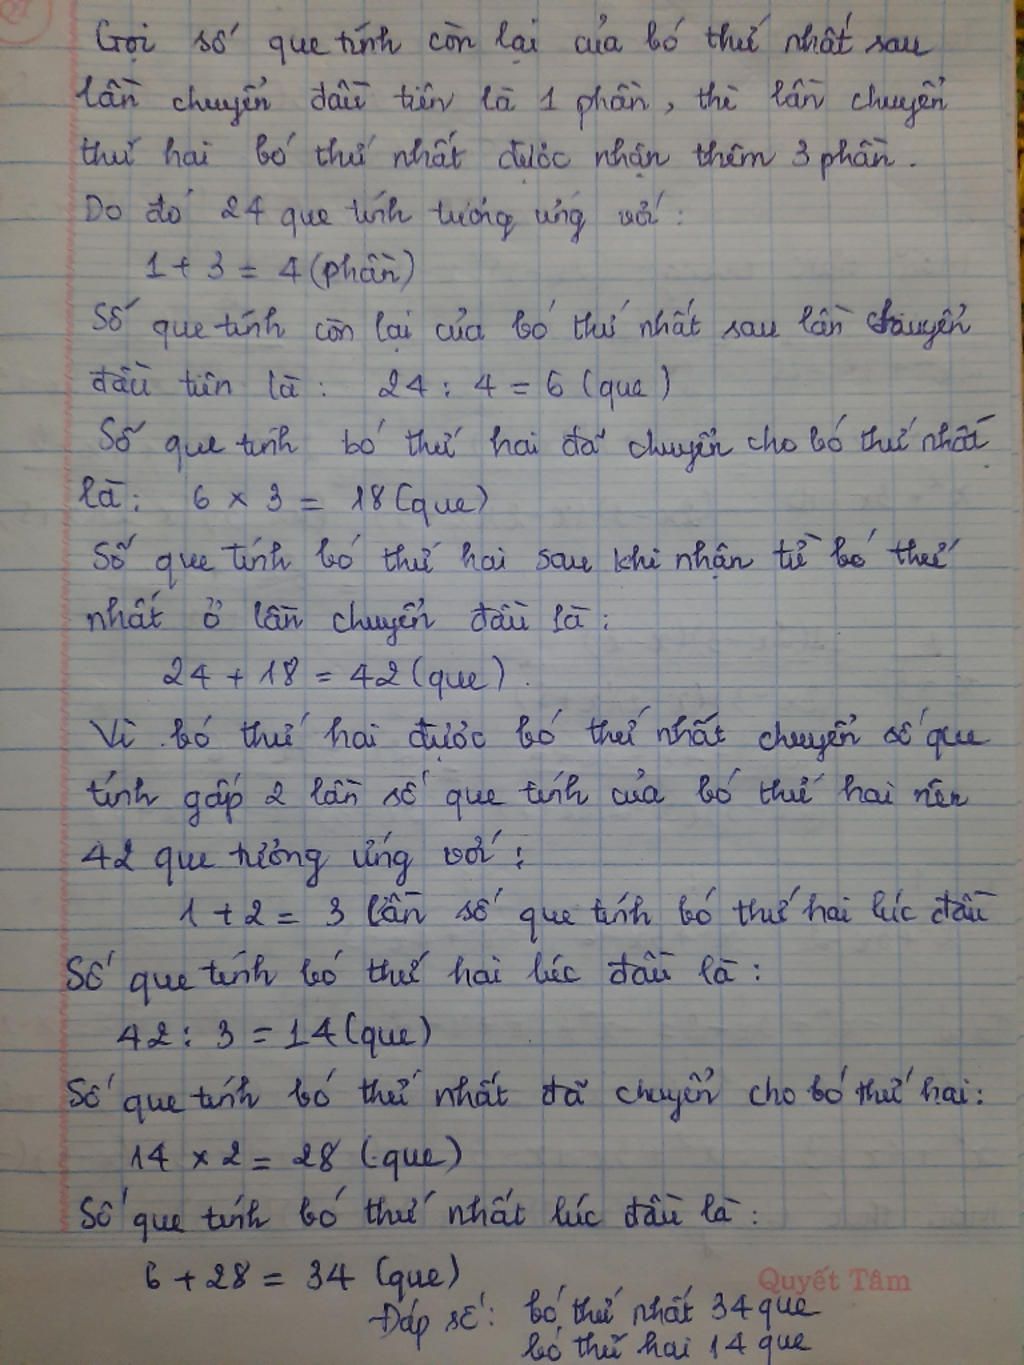 Gọi số que tính còn lại của bó thứ nhất sau
lần chuyển đầu tiên là 1 phần, thì lần chuyển
thứ hai bó thứ nhất được nhận thêm 3 phần.
Do đó 24 que tính tương ứng với:
1 + 3 = 4 (phần)
Số que tính còn lại của bó thứ nhất sau lần chuyển
đầu tiên là: 24 : 4 = 6 (que)
Số que tính bó thứ hai đã chuyển cho bó thứ nhất
là: 6 × 3 = 18 (que)
Số que tính bó thứ hai sau khi nhận từ bó thứ
nhất ở lần chuyển đầu là:
24 + 18 = 42 (que).
Vì bó thứ hai được bó thứ nhất chuyển số que
tính gấp 2 lần số que tính của bó thứ hai nên
42 que tương ứng với:
1 + 2 = 3 lần số que tính bó thứ hai lúc đầu
Số que tính bó thứ hai lúc đầu là:
42 : 3 = 14 (que)
Số que tính bó thứ nhất đã chuyển cho bó thứ hai:
14 × 2 = 28 (que)
Số que tính bó thứ nhất lúc đầu là:
6 + 28 = 34 (que)
Quyết Tâm
Đáp số: bó thứ nhất 34 que
bó thứ hai 14 que